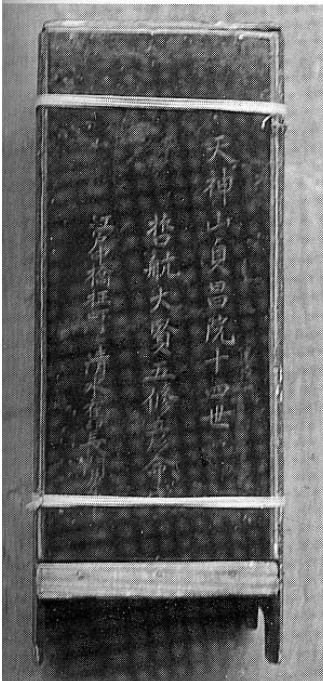 天神山貞昌院十四世
哲航大賢五修
江戸中橋 町 清水 長